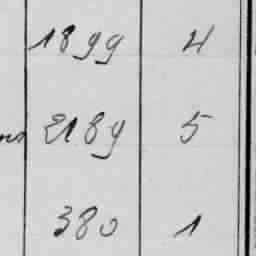 1899 4
2189 5
380 1